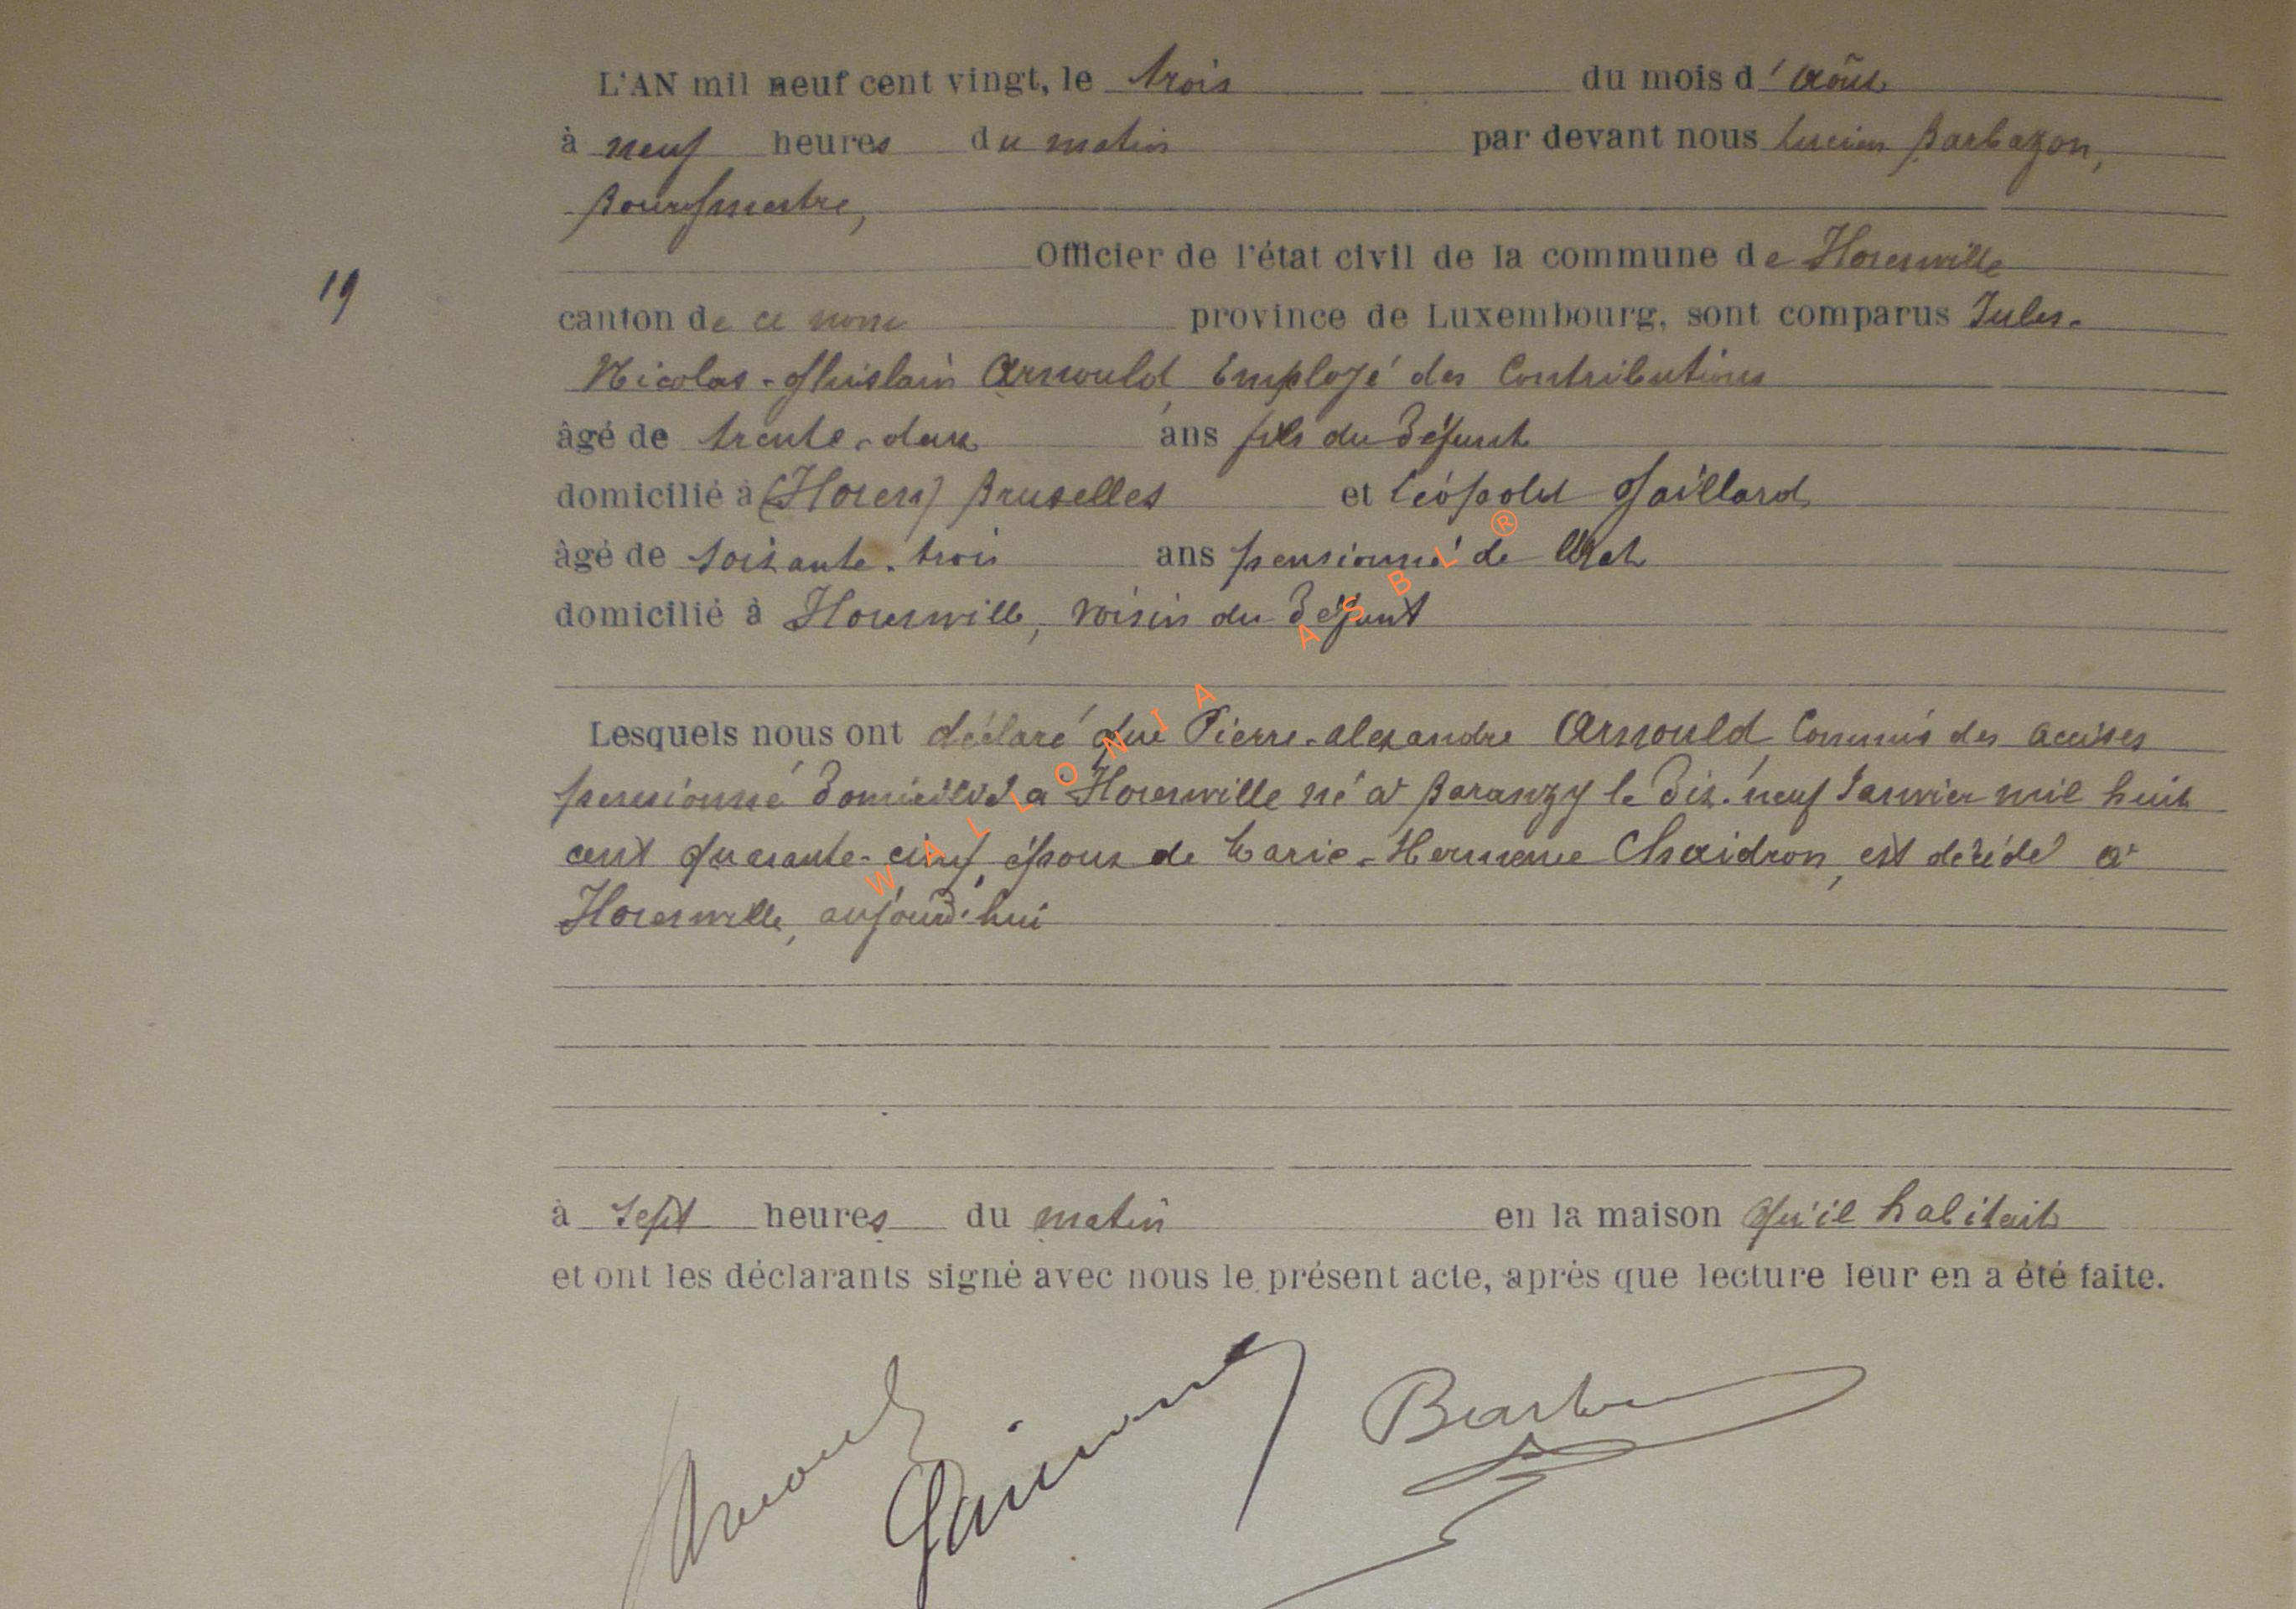 L'AN mil neuf cent vingt, le trois du mois d'Août
à neuf heures du matin par devant nous Lucien Barbazon,
Bourgmestre,
Officier de l'état civil de la commune de Florenville
19
canton de ce nom province de Luxembourg, sont comparus Jules-
Nicolas-Ghislain Arnould, Employé des Contributions
âgé de trente-deux ans fils du défunt
domicilié à (Haren) Bruxelles et Léopold Gaillard
âgé de soixante-trois ans pensionné de l'Etat
domicilié à Florenville, voisin du défunt
Lesquels nous ont déclaré que Pierre-Alexandre Arnould, Commis des accises
pensionné domicilié à Florenville né à Baranzy le dix-neuf Janvier mil huit
cent quarante-cinq, époux de Marie-Hermence Chaidron, est décédé à
Florenville, aujourd'hui
à sept heures du matin en la maison qu'il habitait
et ont les déclarants signé avec nous le présent acte, après que lecture leur en a été faite.
Arnould
WALLONIA ASBL ®